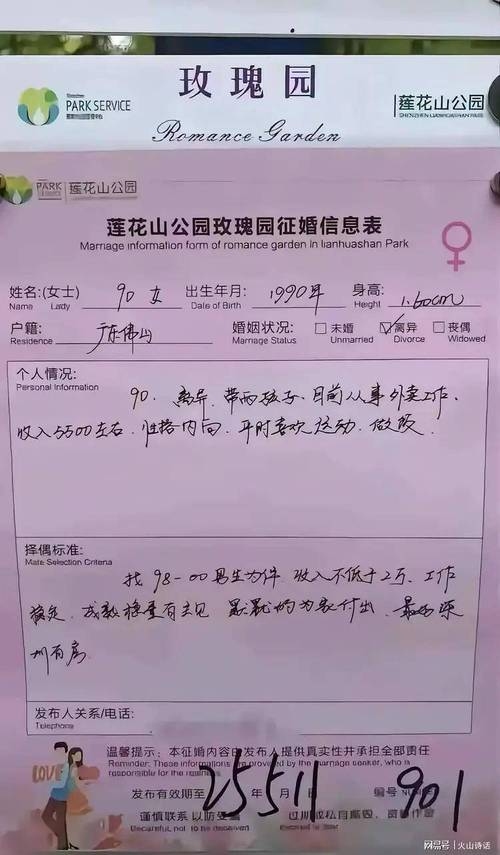 玫瑰园
PARK SERVICE
莲花山公园
SHENZHEN LIANHUASHAN PARK
Romance Garden
PARK 莲花山公园
莲花山公园玫瑰园征婚信息表
Marriage information form of romance garden in lianhuashan Park
姓名:(女士) 90 女 出生年月: 1990年 身高: 1.60cm
Name Lady Date of Birth Height
户籍: 广东佛山 婚姻状况: □未婚 ☑离异 □丧偶
Residence Marriage Status Unmarried Divorce Widowed
个人情况:
Personal Information
90. 离异. 带两孩子. 目前从事外卖工作.
收入5500左右. 性格内向. 平时喜欢运动. 做饭.
择偶标准:
Mate Selection Criteria
找98-00男生为伴 收入不低于2万. 工作
稳定. 成熟稳重有主见 默默的为家付出. 最好深
圳有房.
发布人关系/电话:
Telephone
温馨提示: 本征婚内容由发布人提供真实性并承担全部责任
Reminder: These informations are provided by the marriage seeker, who is
responsible for the realness.
LOVE
发布有效期至 25511 年 月 日 编号 901
谨慎联系 以防受骗
Be careful, not to be deceived
网易号 | 火山诗话